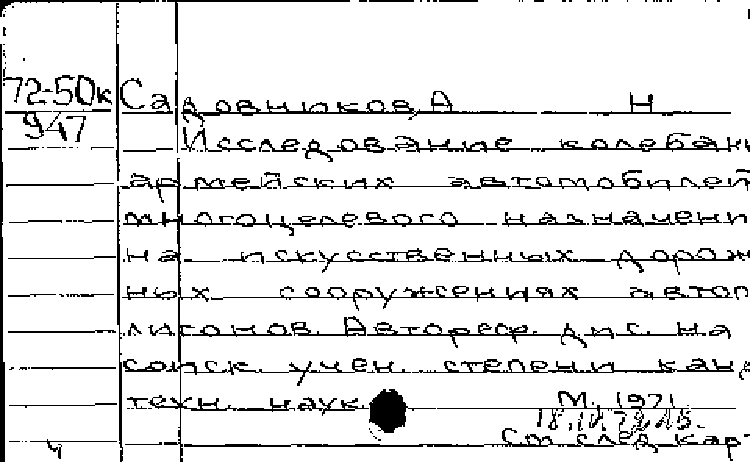 72-50к Садовников, А Н
947 Исследование колебани
армейских автомобилей
многоцелевого назначени
на искусственных дорож
ных сооружениях автопо
лигонов. Автореф. дис. на
соиск. учен. степени канд
техн. наук. М. 1971
См след карт